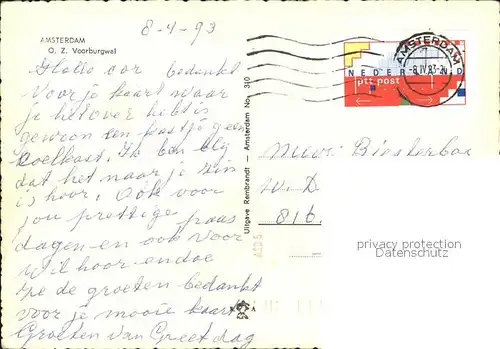 8-4-93
AMSTERDAM
O. Z. Voorburgwal
Hallo cor bedankt
Voor je kaart waar
je het over hebt is
gewoon een kastje geen
Koelkast. Ik ben blij
dat het naar je zin
is hoor. Ook voor
jou prettige paas
dagen en ook voor
Wil hoor en doe
ze de groeten bedankt
voor je mooie kaart
Groeten van Greet dag
Uitgave Rembrandt — Amsterdam No. 310
AMSTERDAM
8.IV.93
NEDERLAND
ptt post
Mevr. Biesterbos
W.D
816.
privacy protection
Datenschutz